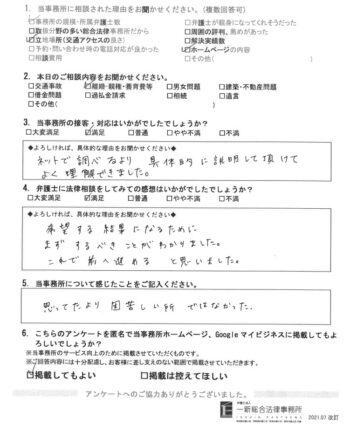 1. 当事務所に相談された理由をお聞かせください。(複数回答可)
□事務所の規模・所属弁護士数 □弁護士が親身になってくれそうだった
□取扱分野の多い総合法律事務所だから □周囲の評判、薦めがあった
☑立地場所(交通アクセスの良さ) □解決実績数
□予約・問い合わせ時の電話対応が良かった ☑ホームページの内容
□相談費用 □その他( )
2. 本日のご相談内容をお聞かせください。
□交通事故 ☑離婚・親権・養育費等 □男女問題 □建築・不動産問題
□借金問題 □過払金請求 □相続 □遺言
□その他( )
3. 当事務所の接客・対応はいかがでしたでしょうか?
□大変満足 ☑満足 □普通 □やや不満 □不満
◆よろしければ、具体的な理由をお聞かせください◆
ネットで調べるより 具体的に説明して頂けて
よく理解できました。
4. 弁護士に法律相談をしてみての感想はいかがでしたでしょうか?
□大変満足 ☑満足 □普通 □やや不満 □不満
◆よろしければ、具体的な理由をお聞かせください◆
希望する結果になるために
まずするべきことがわかりました。
これで前へ進める と思いました。
5. 当事務所について感じたことをご記入ください。
思ってたより 固苦しい所 ではなかった。
6. こちらのアンケートを匿名で当事務所ホームページ、Googleマイビジネスに掲載してもよ
ろしいでしょうか?
※当事務所のサービス向上のために掲載させていただくものです。
※ご回答内容には十分配慮し、お客様に差し支えのない範囲で掲載させていただきます。
☑掲載してもよい □掲載は控えてほしい
アンケートへのご協力ありがとうございました。
弁護士法人
一新総合法律事務所
2021.07 改訂